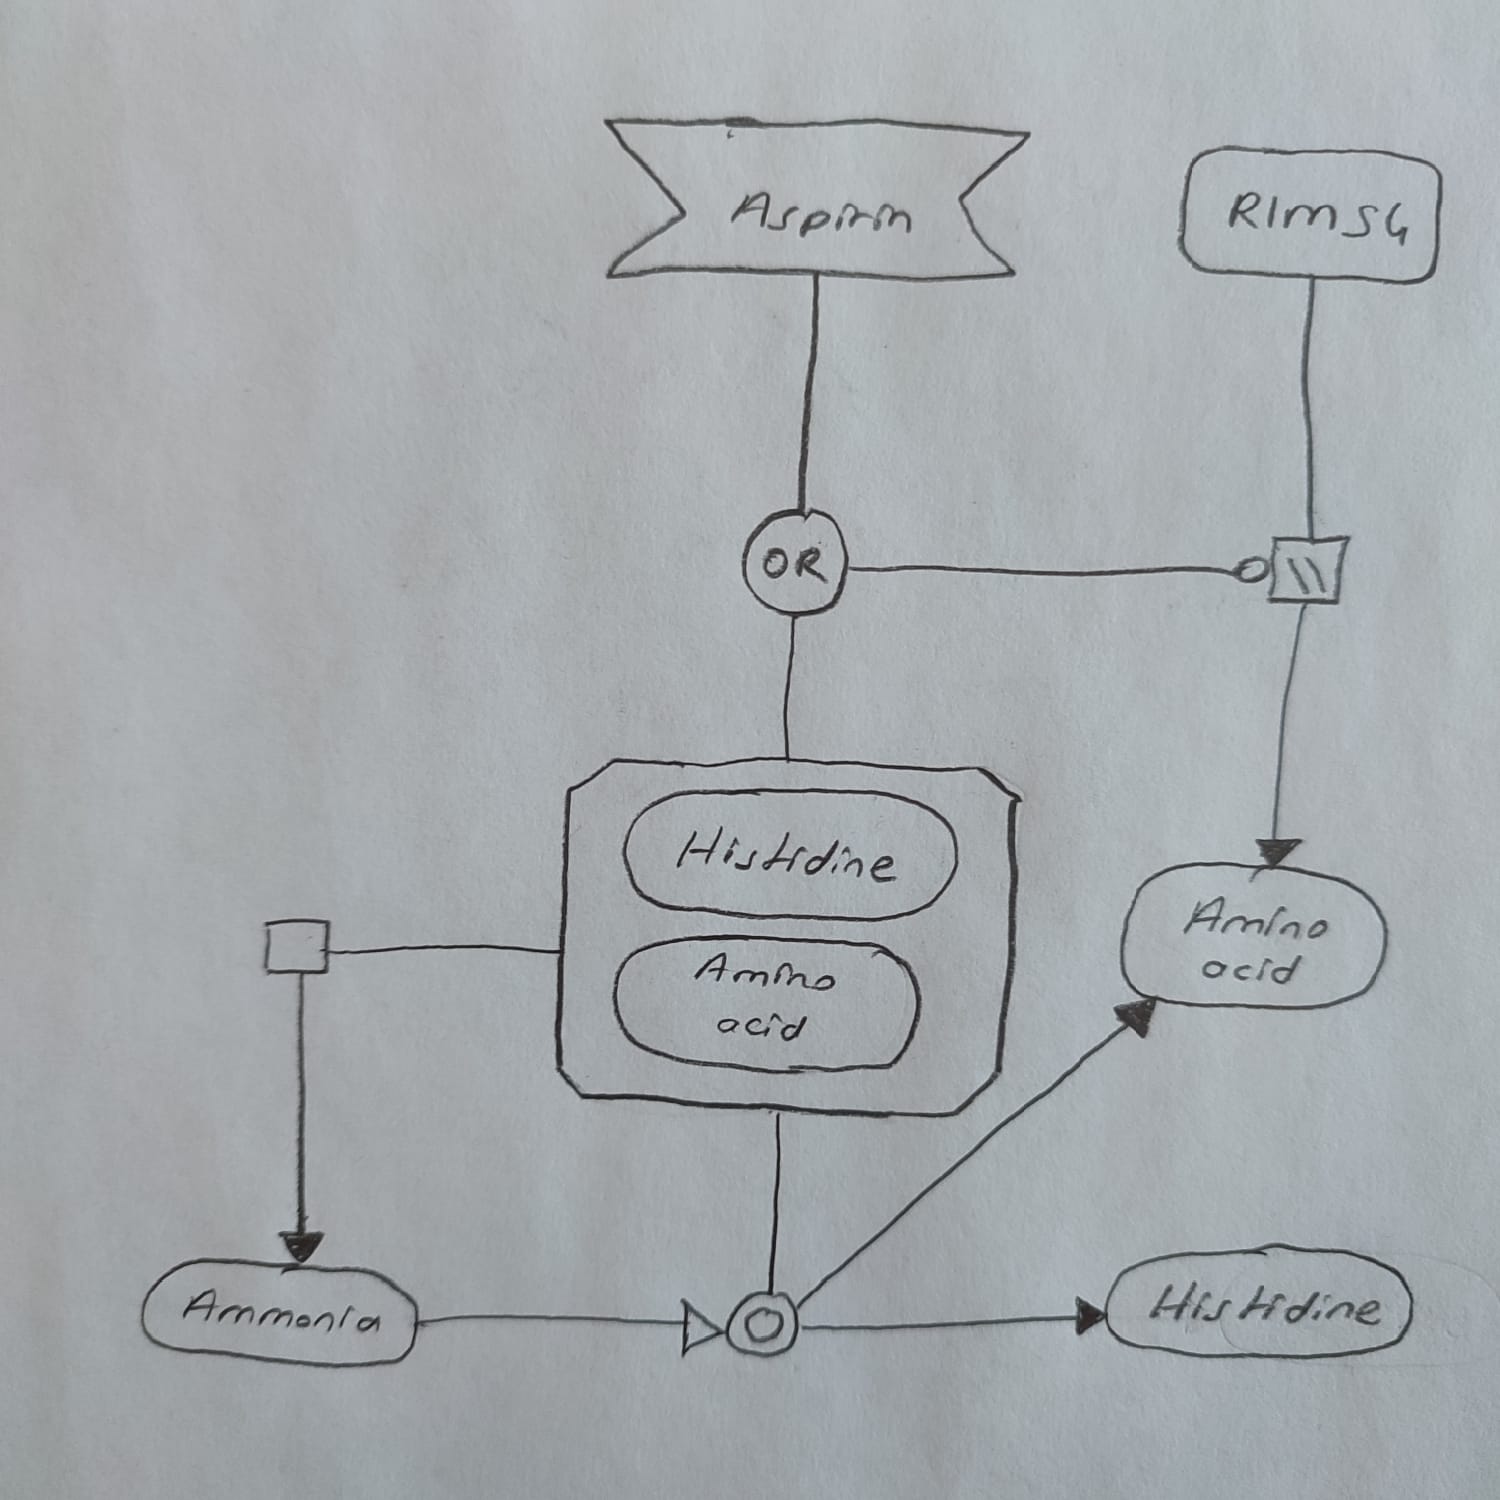 Aspirin
RIMS4
OR
\\
Histidine
Amino
acid
Amino
acid
Ammonia
Histidine